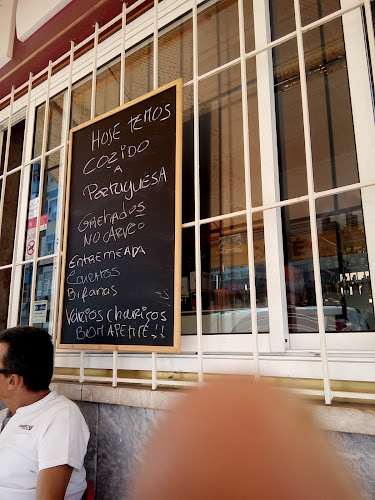 HOJE TEMOS
COZIDO
A
PORTUGUÊSA
GRELHADOS
NO CARVÃO
ENTREMEADA
COURATOS
BIFANAS
VÁRIOS CHOURIÇOS
BOM APETITE!!